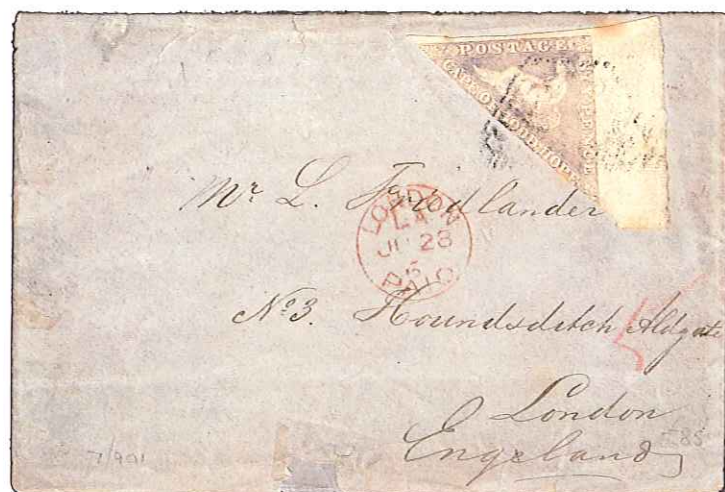 POSTAGE
CAPE OF GOOD HOPE
Mr L. Friedlander
LONDON
28
PAID
No 3. Houndsditch Aldgate
London
Engeland